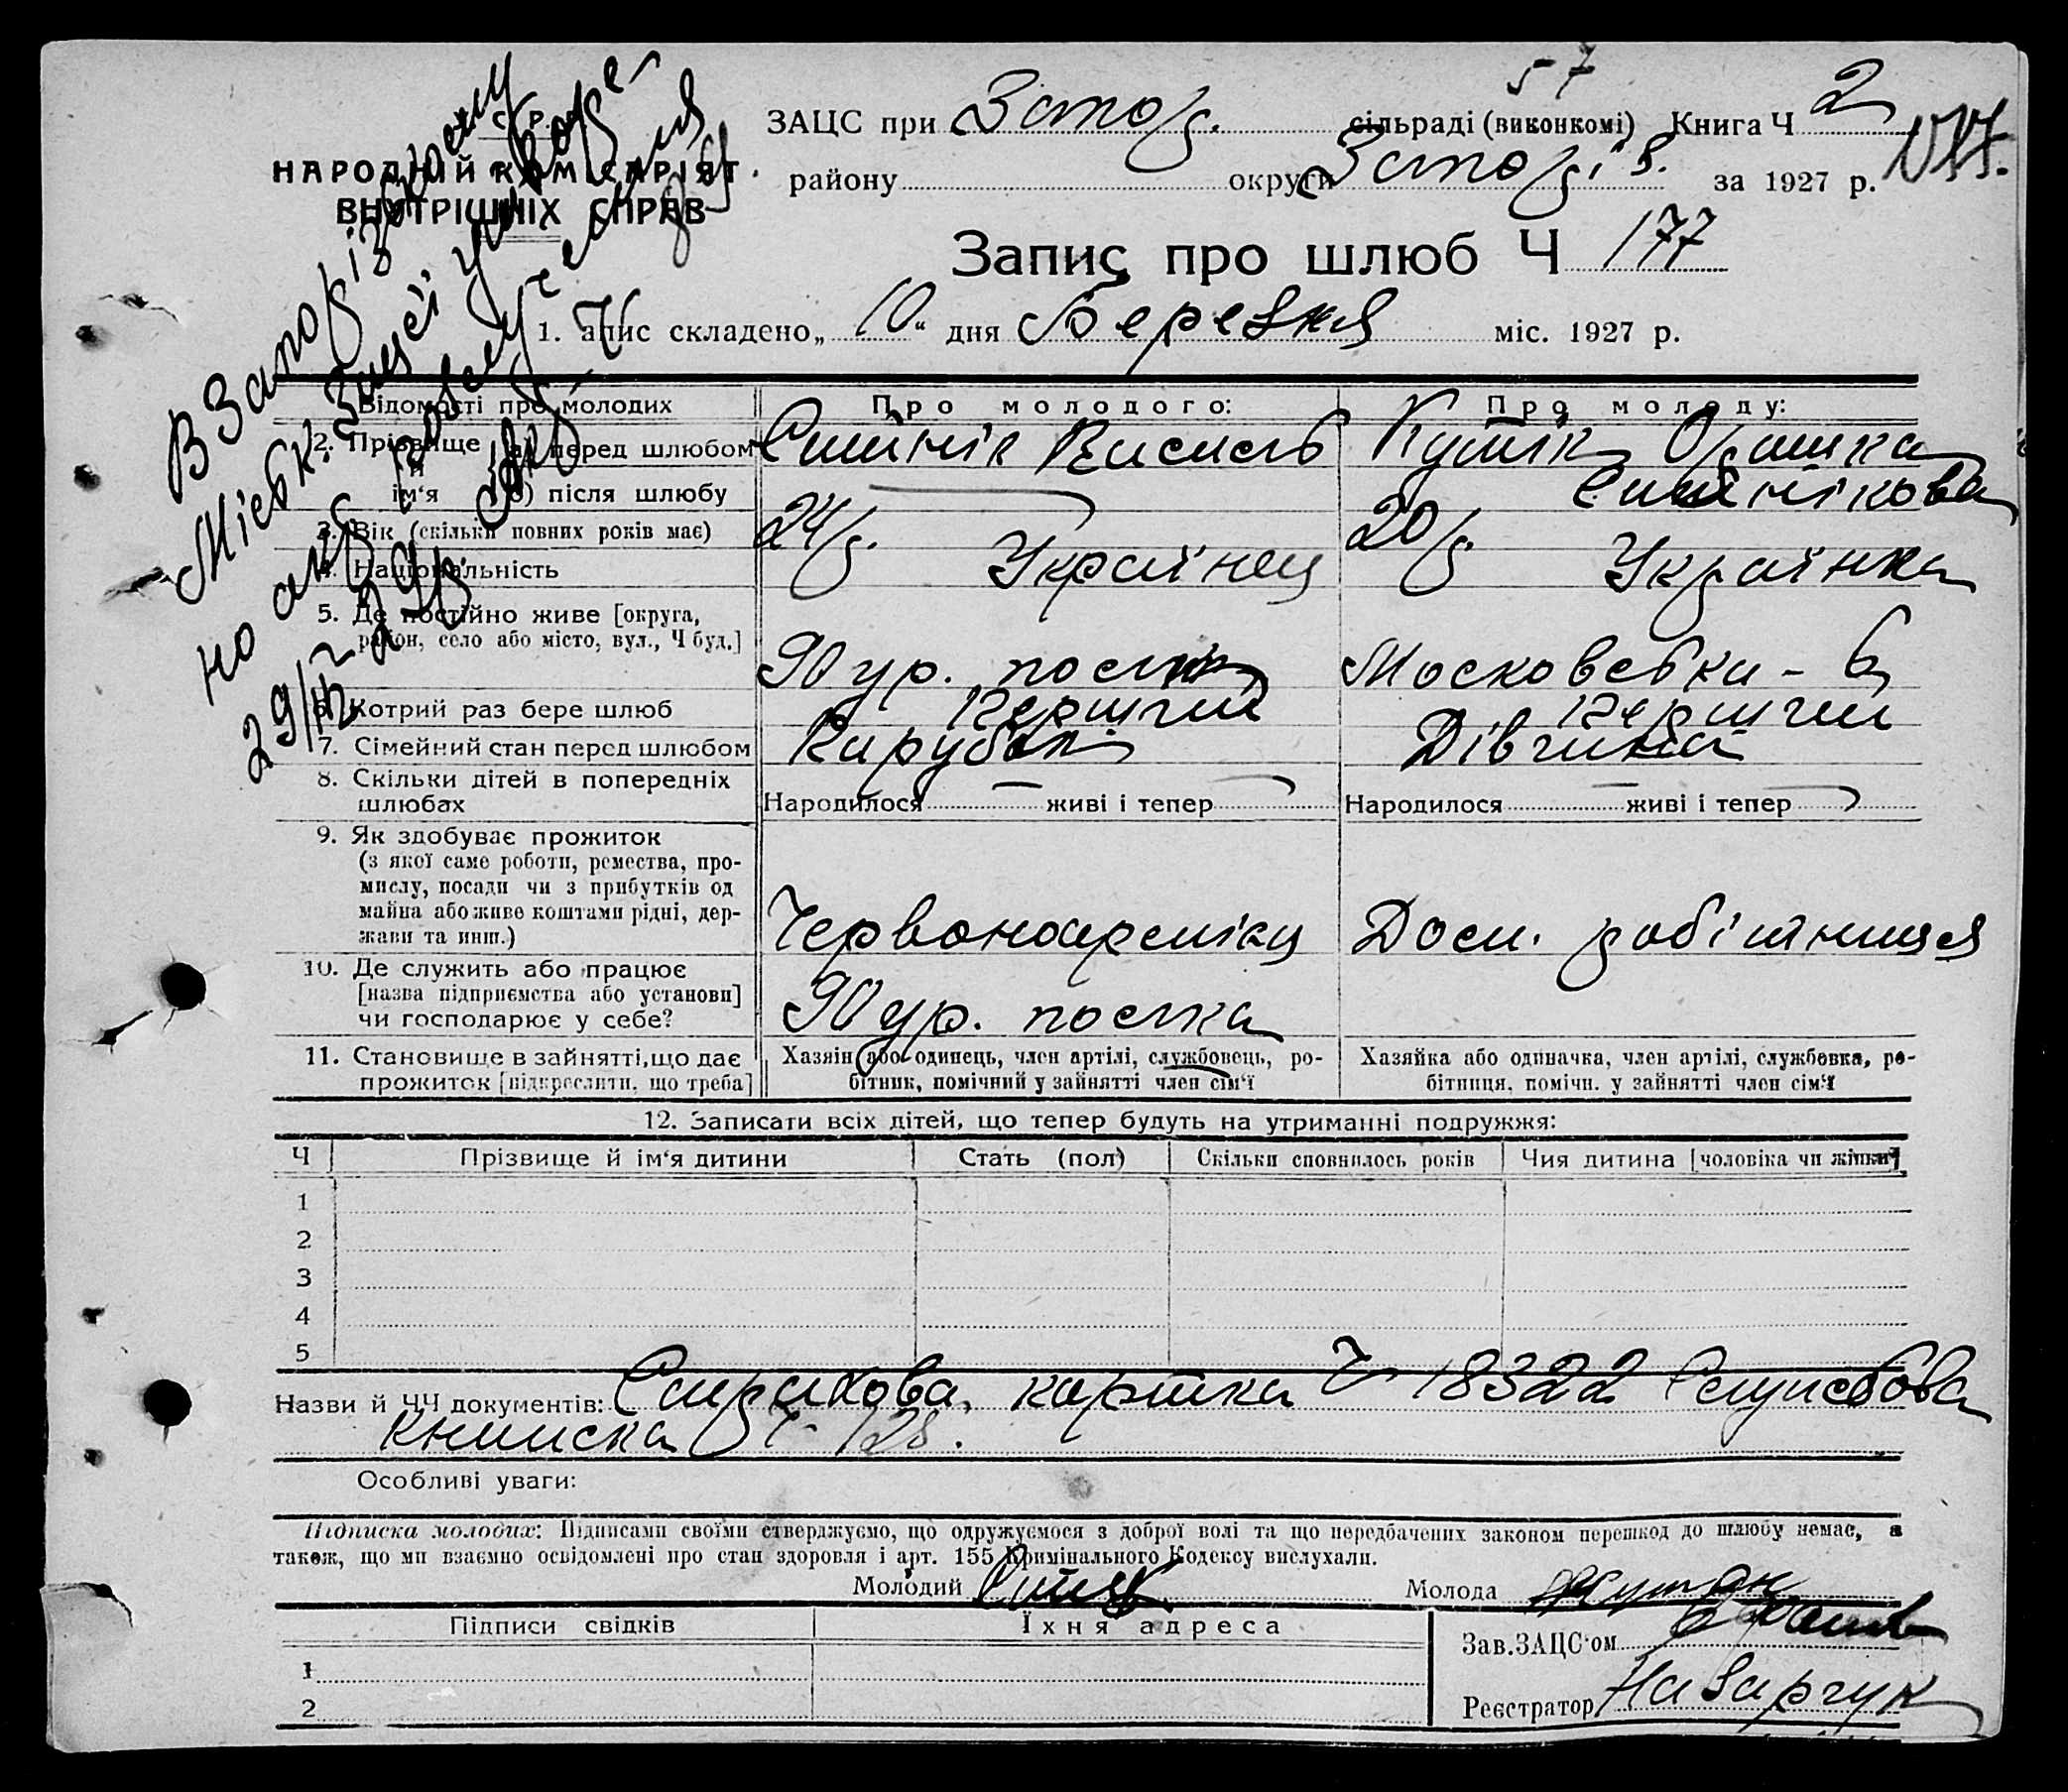 57
С. Р. Р.
НАРОДНІЙ КОМІСАРІЯТ
ВНУТРІШНІХ СПРАВ
ЗАЦС при Запор. сільраді (виконкомі) Книга Ч 2
району округи Запоріз. за 1927 р.
Запис про шлюб Ч 177
1. апис складено „10“ дня Березня міс. 1927 р.
В Запорізькому
Міськ. Зацсі
29/III 29р.
Відомості про молодих Про молодого: Про молоду:
2. Прізвище й ім'я а) перед шлюбом Ситнік Василь Кутік Оришка
б) після шлюбу Ситнікова
3. Вік (скільки повних років має) 24 р. 20 р.
4. Національність Українец Українка
5. Де постійно живе [округа,
район, село або місто, вул., Ч буд.] 90 ур. полка Московська - 6
6. Котрий раз бере шлюб Перший Перший
7. Сімейний стан перед шлюбом Парубок Дівчина
8. Скільки дітей в попередніх
шлюбах Народилося — живі і тепер — Народилося — живі і тепер —
9. Як здобуває прожиток
(з якої саме роботи, ремества, про-
мислу, посади чи з прибутків од
майна або живе коштами рідні, дер-
жави та инш.) Червоноармієц Дом. робітниця
10. Де служить або працює
[назва підприємства або установи]
чи господарює у себе? 90 ур. полка
11. Становище в зайнятті, що дає
прожиток [підкреслити, що треба]
Хазяїн або одинець, член артілі, службовець, ро-
бітник, помічний у зайнятті член сім'ї
Хазяйка або одиначка, член артілі, службовка, ро-
бітниця, помічн. у зайнятті член сім'ї
12. Записати всіх дітей, що тепер будуть на утриманні подружжя:
Ч Прізвище й ім'я дитини Стать (пол) Скільки сповнилось років Чия дитина [чоловіка чи жінки]
1
2
3
4
5
Назви й ЧЧ документів: картка Ч 18322 Службова
книжка Ч 128.
Особливі уваги:
Підписка молодих: Підписами своїми стверджуємо, що одружуємося з доброї волі та що передбачених законом перешкод до шлюбу немає, а
також, що ми взаємно освідомлені про стан здоровля і арт. 155 Кримінального Кодексу вислухали.
Молодий Ситнік Молода
Підписи свідків Їхня адреса
Зав. ЗАЦС'ом
1
Реєстратор Назарчук
2